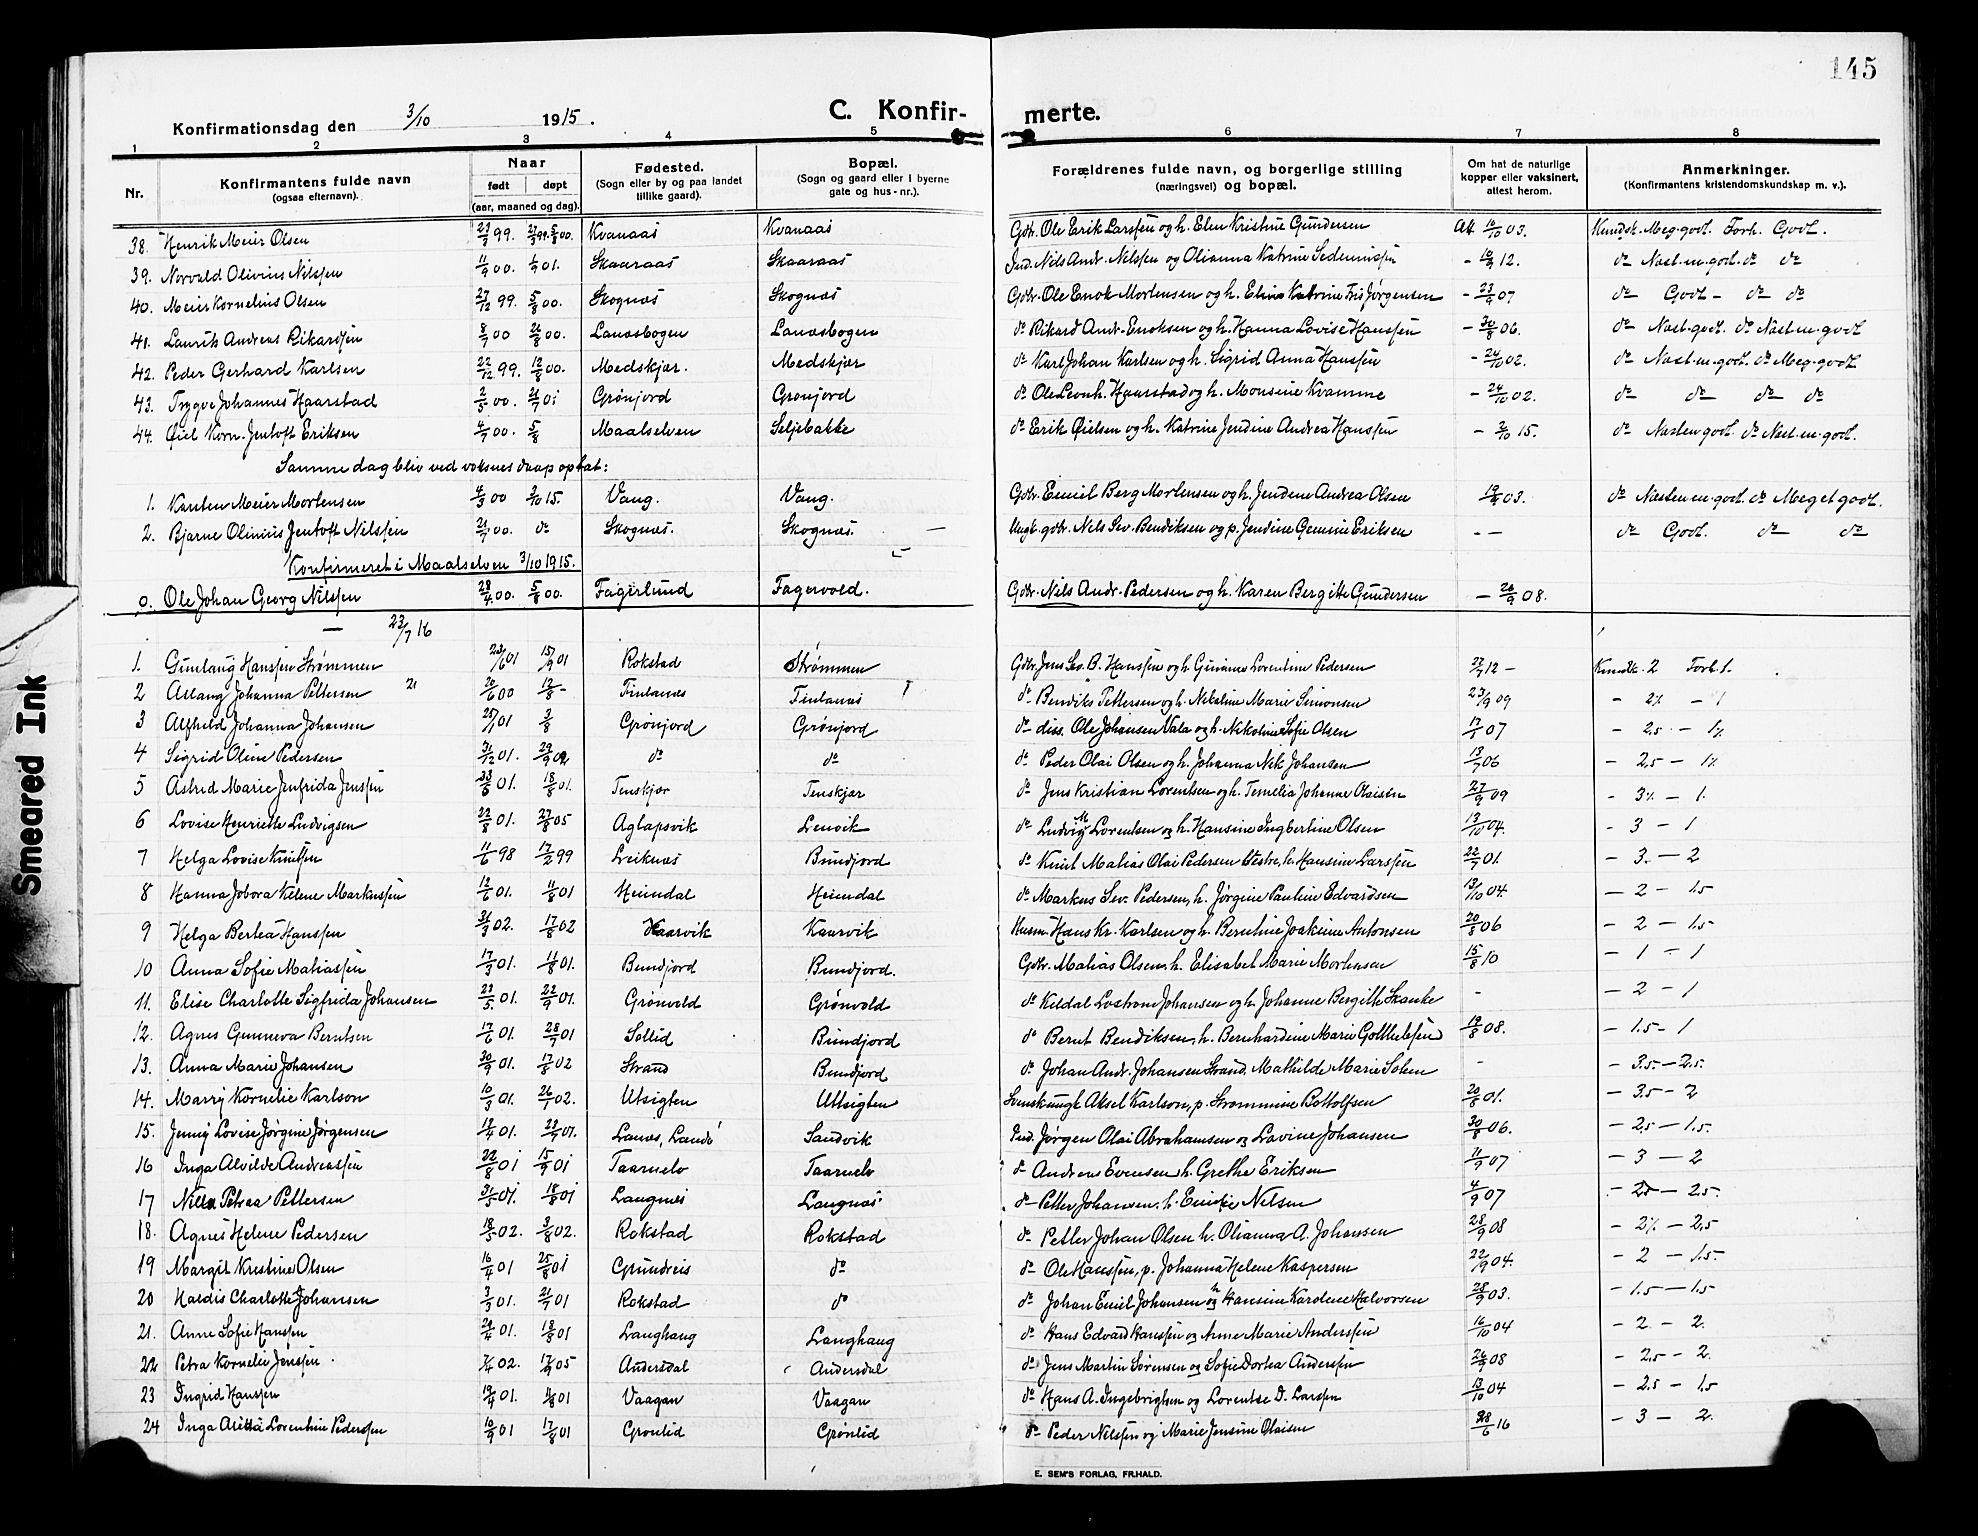 145
C. Konfir- merte.
Konfirmationsdag den 3/10 1915.
1 2 3 4 5 6 7 8
Nr. Konfirmantens fulde navn (ogsaa efternavn). Naar født døpt (aar, maaned og dag). Fødested. (Sogn eller by og paa landet tillike gaard). Bopæl. (Sogn og gaard eller i byerne gate og hus-nr.). Forældrenes fulde navn, og borgerlige stilling (næringsvei) og bopæl. Om hat de naturlige kopper eller vaksinert, attest herom. Anmerkninger. (Konfirmantens kristendomskundskap m. v.).
38. Henrik Meier Olsen 99. 5/8 00. Kvanaas Kvanaas Gbr. Ole Erik Larssen og h. Elen Kristine Gundersen At 03. Kundsk. Meg. godt. Forh. Godt.
39. Norvald Olivius Nilssen 11/9 00. 1/9 01. Skaaraas Skaaraas Ind. Nils Andr. Nilssen og Olianna Katrine - 12. do Nast. en. godt. do do
40. Meier Kornelius Olsen 27/12 99. 5/8 00. Skognæs Skognæs Gbr. Ole Enok Mortensen og h. Katrine Jørgensen - 23/9 07 do Godt - do do
41. Laurits Andreas Rikardsen 8/7 00 26/8 00. Lanæsbogen Lanæsbogen do Rikard Andr. Enoksen og h. Hanna Lovise Hanssen - 30/8 06. do Nast. godt. do Nast. en. godt
42. Peder Gerhard Karlsen 22/12 99. 12/8 00. Medskjær. Medskjær do Karl Johan Karlsen og h. Sigrid Anna Hanssen - 24/10 02. do Nast. en. godt. do Meg. godt
43. Trygve Johannes Haarstad 2/5 00. 01 Grønjord Grønjord do Ole Leonh. Haarstad og h. Monsine Kvamme - 24/10 02. do do do do
44. Øiel Korn. Jentoft Eriksen 4/7 00. 5/8 Maalselven Seljebakke do Erik Øielsen og h. Katrine Jendine Andrea Hanssen - 2/10 15. do Nasten godt. do Nast. en. godt.
Samme dag blev ved voksnes daap optat:
1. Karsten Meier Mortensen 4/3 00 3/10 15. Vang. Vang. Gbr. Emil Berg Mortensen og h. Jendine Andrea Olsen 03. do Nasten en. godt. do Meget godt.
2. Bjarne Olinius Jentoft Nilssen 21/7 00. do Skognæs. Skognæs. — Ungk. gbr. Nils Sev. Bendiksen og p. Jendine Eriksen - — do Godt. do do
Konfirmeret i Maalselven 3/10 1915.
0. Ole Johan Georg Nilssen 28/4 00. 5/8 00. Fagerlund Fagervold. Gbr. Nils Andr. Pedersen og h. Karen Bergitte Gundersen - 26/9 08.
— 23/7 16
1. Gunlaug Hanssen Strømmen 23/6 01 15/9 01 Rokstad Strømmen Gbr. Jens Sev. B. Hanssen og h. Lorentine Pedersen 22/7 12 - Kundsk. 2 Forh. 1.
2 Aslaug Johanna Pettersen 21 20/6 00 12/8 - Finlanæs Finlanæs do Bendiks Pettersen og h. Nikoline Marie Simonsen 23/9 09 - 2½ - 1
3 Alfhild Johanna Johansen 01 2/8 Grønjord Grønjord do diss. Ole Johansen Vala og h. Nikoline Sofie Olsen 07 - 2,5 - 1½
4 Sigrid Oline Pedersen 31/12 01. 29/9 02 do do do Peder Olai Olsen og h. Johanna Nik Johansen 13/7 06 - 2,5 - 1½
5 Astrid Marie Jenfrida Jenssen 01. 18/8 01. Tenskjær Tenskjær do Jens Kristian Lorentsen og h. Johanne Olaisen 27/9 09 - 3½ - 1.
6 Lovise Henriette Ludvigsen 22/8 01. 27/8 05 Aglapsvik Lenvik do Ludvig M Lorentsen og h. Hansine Ingbertine Olsen 13/10 04. - 3 - 1
7 Helga Lovise Knutsen 11/6 98 17/2 99 Leiknæs Bundjord do Knut Matias Olai Pedersen Vestre, h. Hansine Larssen 22/9 01. - 3. - 2
8 Hanna Jobora Helene Markussen 12/6 01. 11/8 01 Heimdal Heimdal do Markus Sev. Pedersen, h. Jørgine Pauline Edvardsen 13/10 04. - 2 - 1.5
9 Helga Bertea Hanssen 02. 17/8 02 Kaarvik Kaarvik Husm. Hans Kr. Karlsen og h. Berntine Joakime Antonsen 20/8 06 - 2 - 1.5
10 Anna Sofie Matiassen 17/3 01. 11/8 01. Bundjord Bundjord. Gbr. Matias Olsen, h. Elisabet Marie Mortensen 15/8 10 - 1 - 1
11. Elise Charlotte Sigfrida Johansen 23/5 01. 22/9 01. Grønvold Grønvold do Kildal Johansen og h. Johanne Bergitte Skanke - - 2 - 1
12. Agnes Gunneva Berntsen 17/6 01. 28/7 01 Sollid Bundjord do Bernt Bendiksen, h. Bernhardine Marie Gotthelfsen 19/8 08. - 1.5 - 1
13. Anna Marie Johansen 30/9 01. 17/8 02 Strand Bundjord do Johan Andr. Johansen Strand, Mathilde Marie - - 3.5. - 2.5.
14. Marry Kornelie Karlson 10/3 01. 26/1 02. Utsigten Uttsigten Svensk ungk. Aksel Karlson, p. Strømmine Rottolfsen 20/8 01. - 3.5 - 2
15. Jenny Lovise Jørgine Jørgensen 13/4 01. 01. Lanæs, Sandvik Ind. Jørgen Olai Abrahamsen og Lovine Johansen 30/8 06. - 2.5 - 1.5.
16 Inga Alvilde Andreassen 22/8 01 15/9 01 Taarnelv Taarnelv do Andreas Evensen h. Grethe Eriksen 11/9 07 - 3 - 2
17 Petraa Pettersen 01. 18/8 01 Langnæs Langnæs do Petter Johansen, h. Nilsen 4/9 07 - - 2.5.
18. Agnes Helene Pedersen 02. 3/8 02. Rokstad Rokstad do Petter Johan Olsen h. Olianna A. Johansen 28/9 08 - 2½ - 2,5
19 Margit Kristine Olsen 16/4 01 25/8 01 Grundreis do do Ole Hanssen, p. Johanna Helene Kaspersen 22/9 04. - 2 - 1.5.
20 Haldis Charlotte Johansen 3/3 01. 21/7 01 Rokstad do do Johan Emil Johansen og h Hansine Karolene Halvorsen 28/9 03. - 1.5 - 1.5
21. Anne Sofie Hanssen 01. 18/8 01 Langhaug Langhaug do Hans Edvard Hanssen og Anne Marie Anderssen 16/10 04 - 2 - 2.
22 Petra Kornelie Jenssen. 02. 05 Andersdal Andersdal do Jens Martin Sørensen og Sofie Dortea Anderssen 08 - 2.5 - 2.
23 Ingrid Hanssen 01. 11/8 01 Vaagan Vaagan do Hans A. Ingebrigtsen og Lorentse D. Larssen 13/10 04 - 2.5 - 1.5
24 Inga Lorentine Pederssen 10/9 01 17/8 01 Grønlid Grønlid do Peder Nilssen og Marie Jensine Olaisen 28/6 16 - 3 - 2.
E. SEM'S FORLAG, FR.HALD.
Smeared Ink